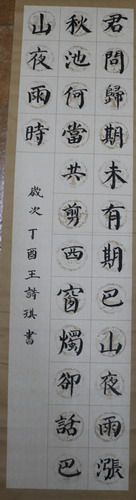 君問歸期未有期巴山夜雨漲
秋池何當共剪西窗燭卻話巴
山夜雨時
歲次丁酉王詩琪書